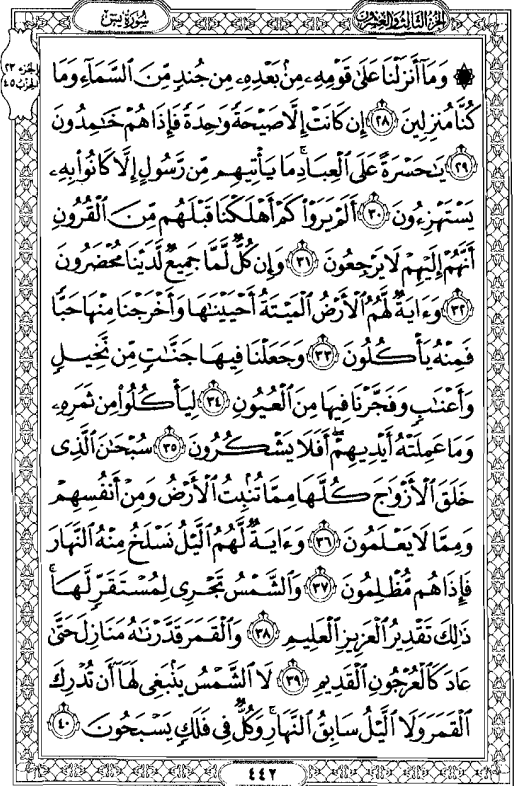 سُورَةُ يسٓ
الجُزْءُ الثَّالِثُ وَالعِشْرُونَ
الجزء ٢٣
الحزب ٤٥
۞ وَمَآ أَنزَلْنَا عَلَىٰ قَوْمِهِۦ مِنۢ بَعْدِهِۦ مِن جُندٍ مِّنَ ٱلسَّمَآءِ وَمَا
كُنَّا مُنزِلِينَ ٢٨ إِن كَانَتْ إِلَّا صَيْحَةً وَٰحِدَةً فَإِذَا هُمْ خَٰمِدُونَ
٢٩ يَٰحَسْرَةً عَلَى ٱلْعِبَادِ ۚ مَا يَأْتِيهِم مِّن رَّسُولٍ إِلَّا كَانُوا۟ بِهِۦ
يَسْتَهْزِءُونَ ٣٠ أَلَمْ يَرَوْا۟ كَمْ أَهْلَكْنَا قَبْلَهُم مِّنَ ٱلْقُرُونِ
أَنَّهُمْ إِلَيْهِمْ لَا يَرْجِعُونَ ٣١ وَإِن كُلٌّ لَّمَّا جَمِيعٌ لَّدَيْنَا مُحْضَرُونَ
٣٢ وَءَايَةٌ لَّهُمُ ٱلْأَرْضُ ٱلْمَيْتَةُ أَحْيَيْنَٰهَا وَأَخْرَجْنَا مِنْهَا حَبًّا
فَمِنْهُ يَأْكُلُونَ ٣٣ وَجَعَلْنَا فِيهَا جَنَّٰتٍ مِّن نَّخِيلٍ
وَأَعْنَٰبٍ وَفَجَّرْنَا فِيهَا مِنَ ٱلْعُيُونِ ٣٤ لِيَأْكُلُوا۟ مِن ثَمَرِهِۦ
وَمَا عَمِلَتْهُ أَيْدِيهِمْ ۖ أَفَلَا يَشْكُرُونَ ٣٥ سُبْحَٰنَ ٱلَّذِى
خَلَقَ ٱلْأَزْوَٰجَ كُلَّهَا مِمَّا تُنۢبِتُ ٱلْأَرْضُ وَمِنْ أَنفُسِهِمْ
وَمِمَّا لَا يَعْلَمُونَ ٣٦ وَءَايَةٌ لَّهُمُ ٱلَّيْلُ نَسْلَخُ مِنْهُ ٱلنَّهَارَ
فَإِذَا هُم مُّظْلِمُونَ ٣٧ وَٱلشَّمْسُ تَجْرِى لِمُسْتَقَرٍّ لَّهَا ۚ
ذَٰلِكَ تَقْدِيرُ ٱلْعَزِيزِ ٱلْعَلِيمِ ٣٨ وَٱلْقَمَرَ قَدَّرْنَٰهُ مَنَازِلَ حَتَّىٰ
عَادَ كَٱلْعُرْجُونِ ٱلْقَدِيمِ ٣٩ لَا ٱلشَّمْسُ يَنۢبَغِى لَهَآ أَن تُدْرِكَ
ٱلْقَمَرَ وَلَا ٱلَّيْلُ سَابِقُ ٱلنَّهَارِ ۚ وَكُلٌّ فِى فَلَكٍ يَسْبَحُونَ ٤٠
٤٤٢